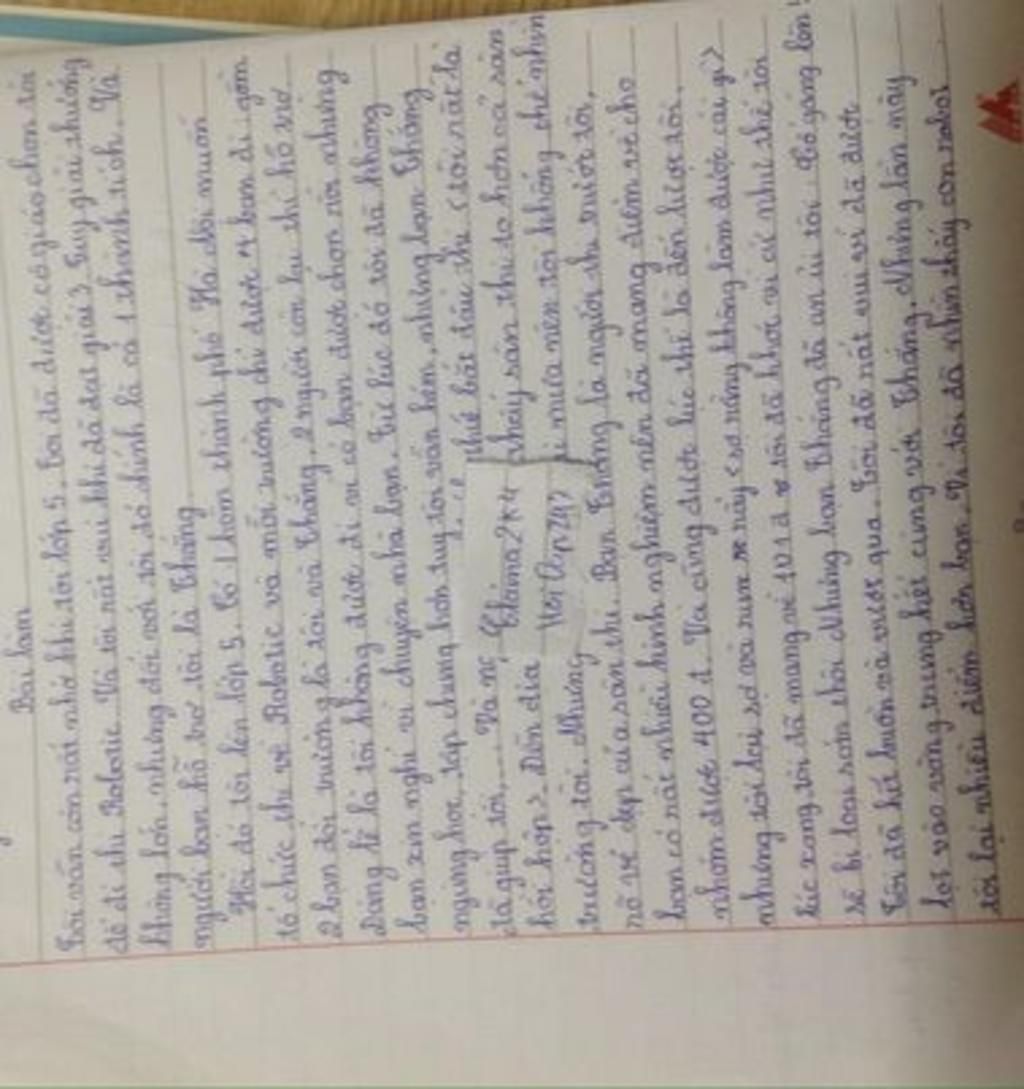 Bài làm
Tôi vẫn còn rất nhớ khi tôi lớp 5. Tôi đã được cô giáo chọn tôi
để đi thi Robotic. Và tôi rất vui khi đã đạt giải 3. Tuy giải thưởng
không lớn, nhưng đối với tôi đó chính là cả 1 thành tích. Và
người bạn hỗ trợ tôi là Thắng.
Hồi đó tôi lên lớp 5. Có 1 hôm thành phố Hà Nội muốn
tổ chức thi về Robotic và mỗi trường chỉ được 4 bạn đi gồm
2 bạn đội trưởng là tôi và Thắng, 2 người còn lại thì hỗ trợ.
Đáng lẽ là tôi không được đi vì có bạn được chọn rồi nhưng
bạn xin nghỉ vì chuyện nhà bạn. Từ lúc đó tôi đã không
ngừng học, tập chung hơn tuy tôi vẫn kém, nhưng bạn Thắng
đã giúp tôi,.... Và thế bắt đầu thi (tôi rất là
hồi hộp). Đến địa thấy sân thi to hơn cả sân
trường tôi. Nhưng mưa nên tôi không thể nhìn
rõ vẻ đẹp của sân thi. Bạn Thắng là người thi trước tôi,
bạn có rất nhiều kinh nghiệm nên đã mang điểm về cho
nhóm được 400 đ. Và cũng được lúc thì là đến lượt tôi,
nhưng tôi lại sợ và run rẩy (sợ rằng không làm được cái gì)
lúc xong tôi đã mang về 101 đ tôi đã khóc vì cứ như thế tôi
sẽ bị loại sớm thôi. Nhưng bạn Thắng đã an ủi tôi "Cố gắng lên!"
Tôi đã hết buồn và vượt qua. Tôi đã rất vui vì đã được
lọt vào vòng trung kết cùng với Thắng. Nhưng lần này
tôi lại nhiều điểm hơn bạn. Vì tôi đã nhìn thấy con robot
Eleina2k4